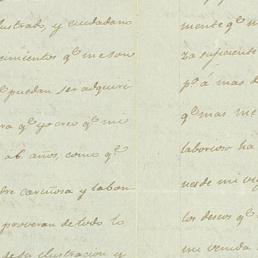 lustrado, y ciudadano
ocimientos q.e me son
q.e puedan ser adquiri
ra q.e yo creo q.e me
ab. años, como q.e
dre cariñosa y labori
proveran de todo lo
de su ilustracion y
mente q.e m
za suficiente
p.r á mas d
q.e mas me
laborioso ha
desde mi vi
los deseos q.e
mi venida